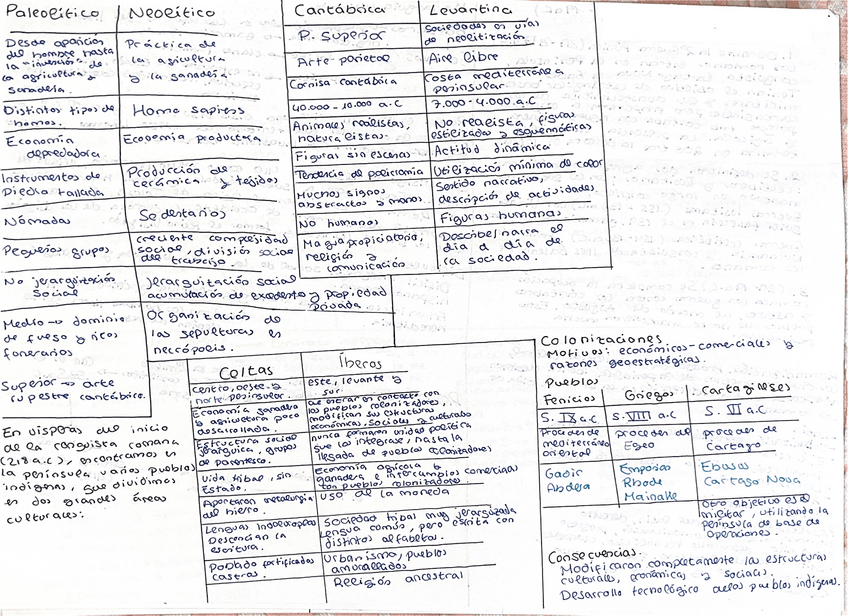 Paleolítico
Neolítico
Desde aparición
del hombre hasta
la "invención" de
la agricultura y
ganadería.
Práctica de
la agricultura
y la ganadería.
Distintos tipos de
homos.
Homo sapiens
Economía
depredadora
Economía productora
Instrumentos de
Piedra tallada
Producción de
cerámica y tejidos
Nómadas
Sedentarios
Pequeños grupos
creciente complejidad
social, división social
del trabajo.
No jerarquización
social
Jerarquización social
acumulación de excedente y propiedad
privada
Medio → dominio
de fuego y ritos
funerarios
Superior → arte
rupestre cantábrico.
Organización de
las sepulturas en
necrópolis.
Cantábrica
Levantina
P. Superior
Sociedades en vías
de neolitización
Arte parietal
Aire libre
Cornisa cantábrica
Costa mediterránea
peninsular
40.000 - 10.000 a.C
7.000 - 4.000 a.C
Animales realistas,
naturalistas.
No realista, figuras
estilizadas y esquemáticas
Figuras sin escenas
Actitud dinámica
Tendencia de policromía
Utilización mínima de color
Muchos signos
abstractos y manos
Sentido narrativo,
descripción de actividades
No humanos
Figuras humanas
Magia propiciatoria,
religión y
comunicación
Describe/narra el
día a día de
la sociedad.
En vísperas del inicio
de la conquista romana
(218 a.C), encontramos en
la península varios pueblos
indígenas, que dividimos
en dos grandes áreas
culturales:
Celtas
Íberos
centro, oeste y
norte peninsular.
este, levante y
sur
Economía ganadera
la agricultura poco
desarrollada.
al entrar en contacto con
los pueblos colonizadores,
modifican sus estructuras
económicas, sociales y culturales
Estructura social
jerárquica, grupos
de parentesco.
nunca formaron unidad política
que los integrase, hasta la
llegada de pueblos colonizadores
Vida tribal, sin
Estado.
Economía agrícola y
ganadera e intercambios comerciales
con pueblos colonizadores
Aportaron metalurgia
del hierro.
uso de la moneda
Lenguas indoeuropeas
Desconocían la
escritura.
Sociedad tribal muy jerarquizada
Lengua común, pero escrita con
distintos alfabetos.
Poblado fortificados
castros.
Urbanismo, pueblos
amurallados
Religión ancestral
Colonizaciones
Motivos: económicos-comerciales y
razones geoestratégicas.
Pueblos
Fenicios
Griegos
Cartagineses
S. IX a.C
S. VIII a.C
S. VI a.C
Proceden de
mediterráneo
oriental
proceden del
Egeo
proceden de
Cartago
Gadir
Abdera
Emporion
Rhode
Mainake
Ebusus
Cartago Nova
Otro objetivo es el
militar, utilizando la
península de base de
operaciones.
Consecuencias.
Modificaron completamente las estructuras
culturales, económicas y sociales.
Desarrollo tecnológico de los pueblos indígenas.